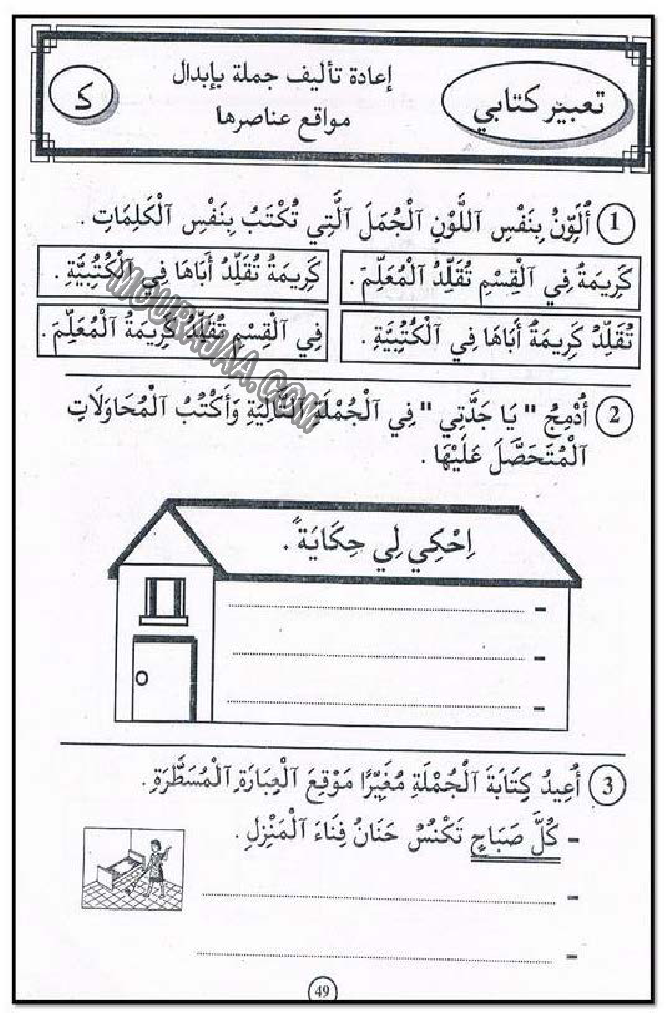 تعبير كتابي
إعادة تأليف جملة بإبدال
مواقع عناصرها
ك
1 أُلَوِّنُ بِنَفْسِ ٱللَّوْنِ ٱلْجُمَلَ ٱلَّتِي تُكْتَبُ بِنَفْسِ ٱلْكَلِمَاتِ .
كَرِيمَةُ فِي ٱلْقِسْمِ تُقَلِّدُ ٱلْمُعَلِّمَ .
كَرِيمَةُ تُقَلِّدُ أَبَاهَا فِي ٱلْكُتُبِيَّةِ .
تُقَلِّدُ كَرِيمَةُ أَبَاهَا فِي ٱلْكُتُبِيَّةِ .
فِي ٱلْقِسْمِ تُقَلِّدُ كَرِيمَةُ ٱلْمُعَلِّمَ .
MOURAJAA.COM
2 أُدْمِجُ " يَا جَدَّتِي " فِي ٱلْجُمْلَةِ ٱلتَّالِيَةِ وَأَكْتُبُ ٱلْمُحَاوَلَاتِ
ٱلْمُتَحَصَّلَ عَلَيْهَا .
اِحْكِي لِي حِكَايَةً .
3 أُعِيدُ كِتَابَةَ ٱلْجُمْلَةِ مُغَيِّرًا مَوْقِعَ ٱلْعِبَارَةِ ٱلْمُسَطَّرَةِ .
- كُلَّ صَبَاحٍ تَكْنُسُ حَنَانُ فِنَاءَ ٱلْمَنْزِلِ .
49